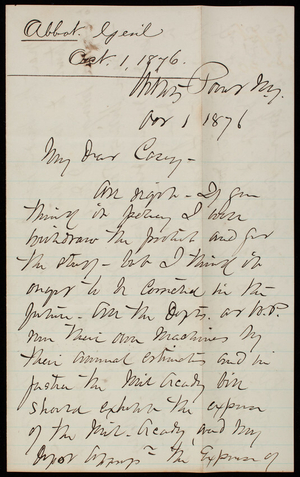 Abbot. Genl
Oct. 1, 1876.
Willets Point N.Y.
Oct 1 1876
My Dear Casey -
All right - If you
think it policy I will
withdraw the protest and for
the stuff - but I think it
ought to be corrected in the
future. All the Depts. at W.P.
run their own machines by
their annual estimates and in
justice the Mil Acady bill
should exhibit the expense
of the Mil. Acady and my
Depot Approp the Expense of